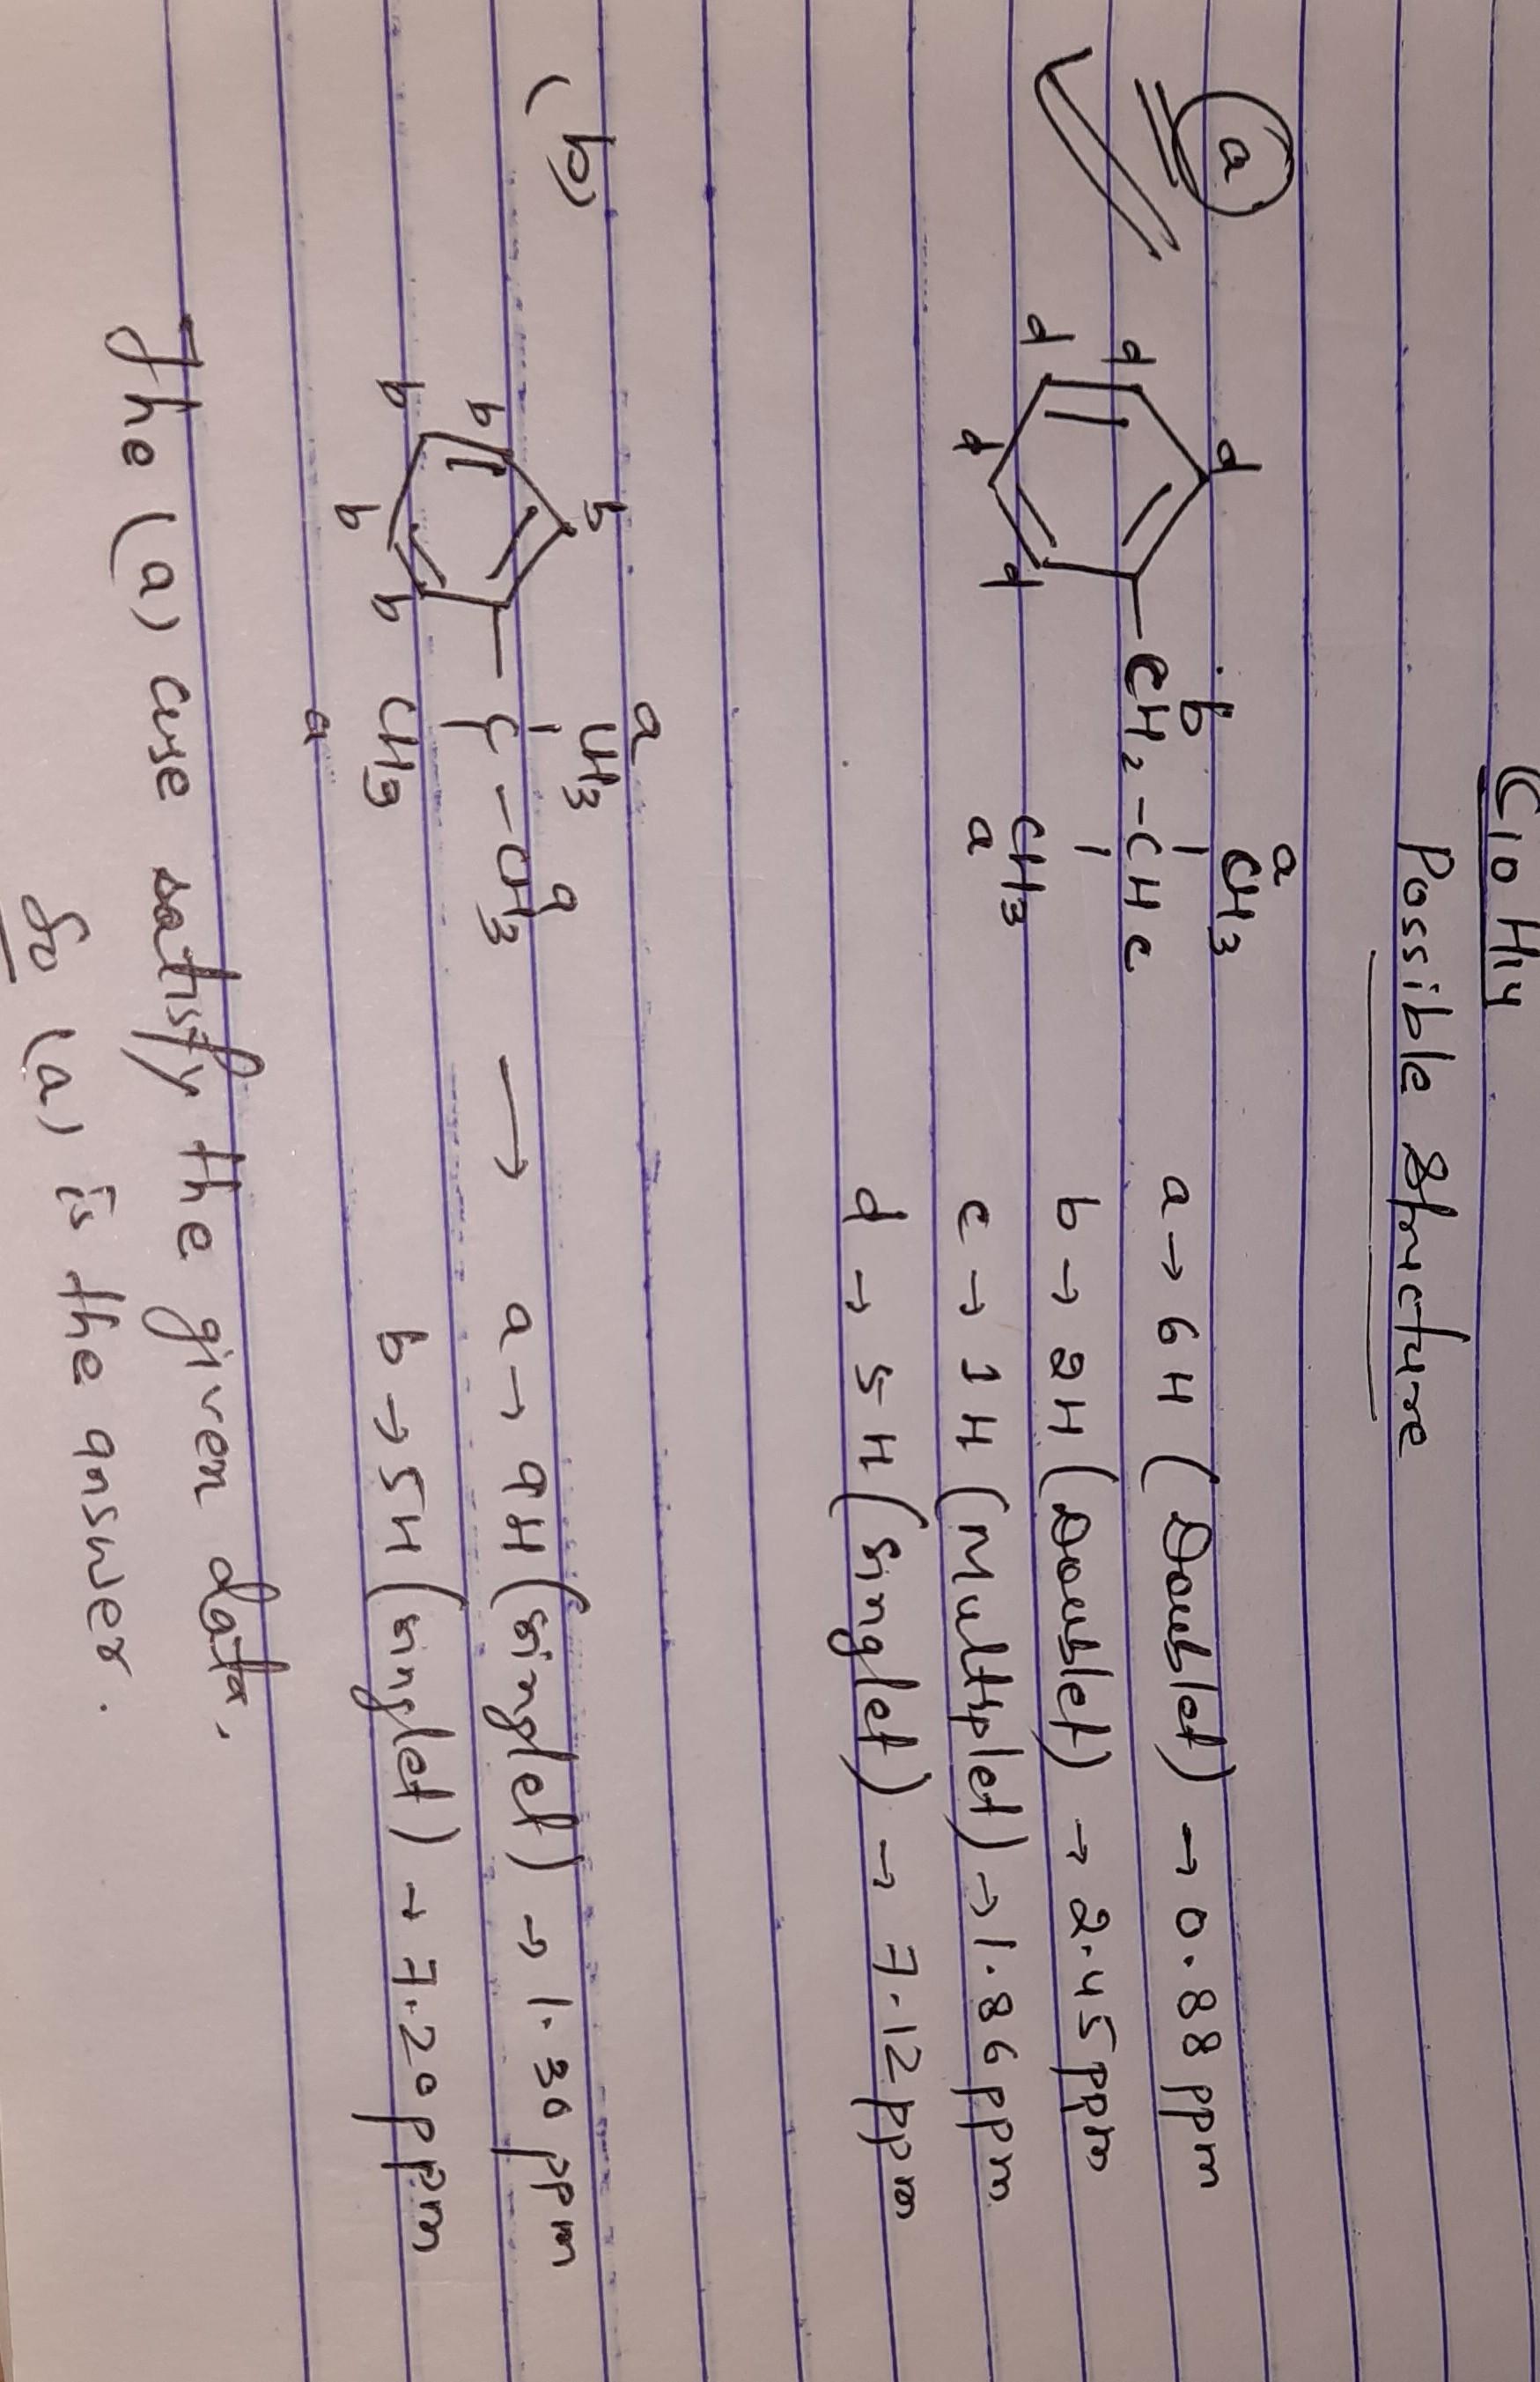 C10 H14
Possible Structure
(a)
a CH3
d d d d d
b
CH2 - CH c
CH3
a
a → 6H (Doublet) → 0.88 ppm
b → 2H (Doublet) → 2.45 ppm
c → 1H (Multiplet) → 1.86 ppm
d → 5H (singlet) → 7.12 ppm
(b)
a
CH3 a
b b b b b
C - CH3
CH3
a
→ a → 9H (singlet) → 1.30 ppm
b → 5H (singlet) → 7.20 ppm
The (a) satisfy the given data.
So (a) is the answer.